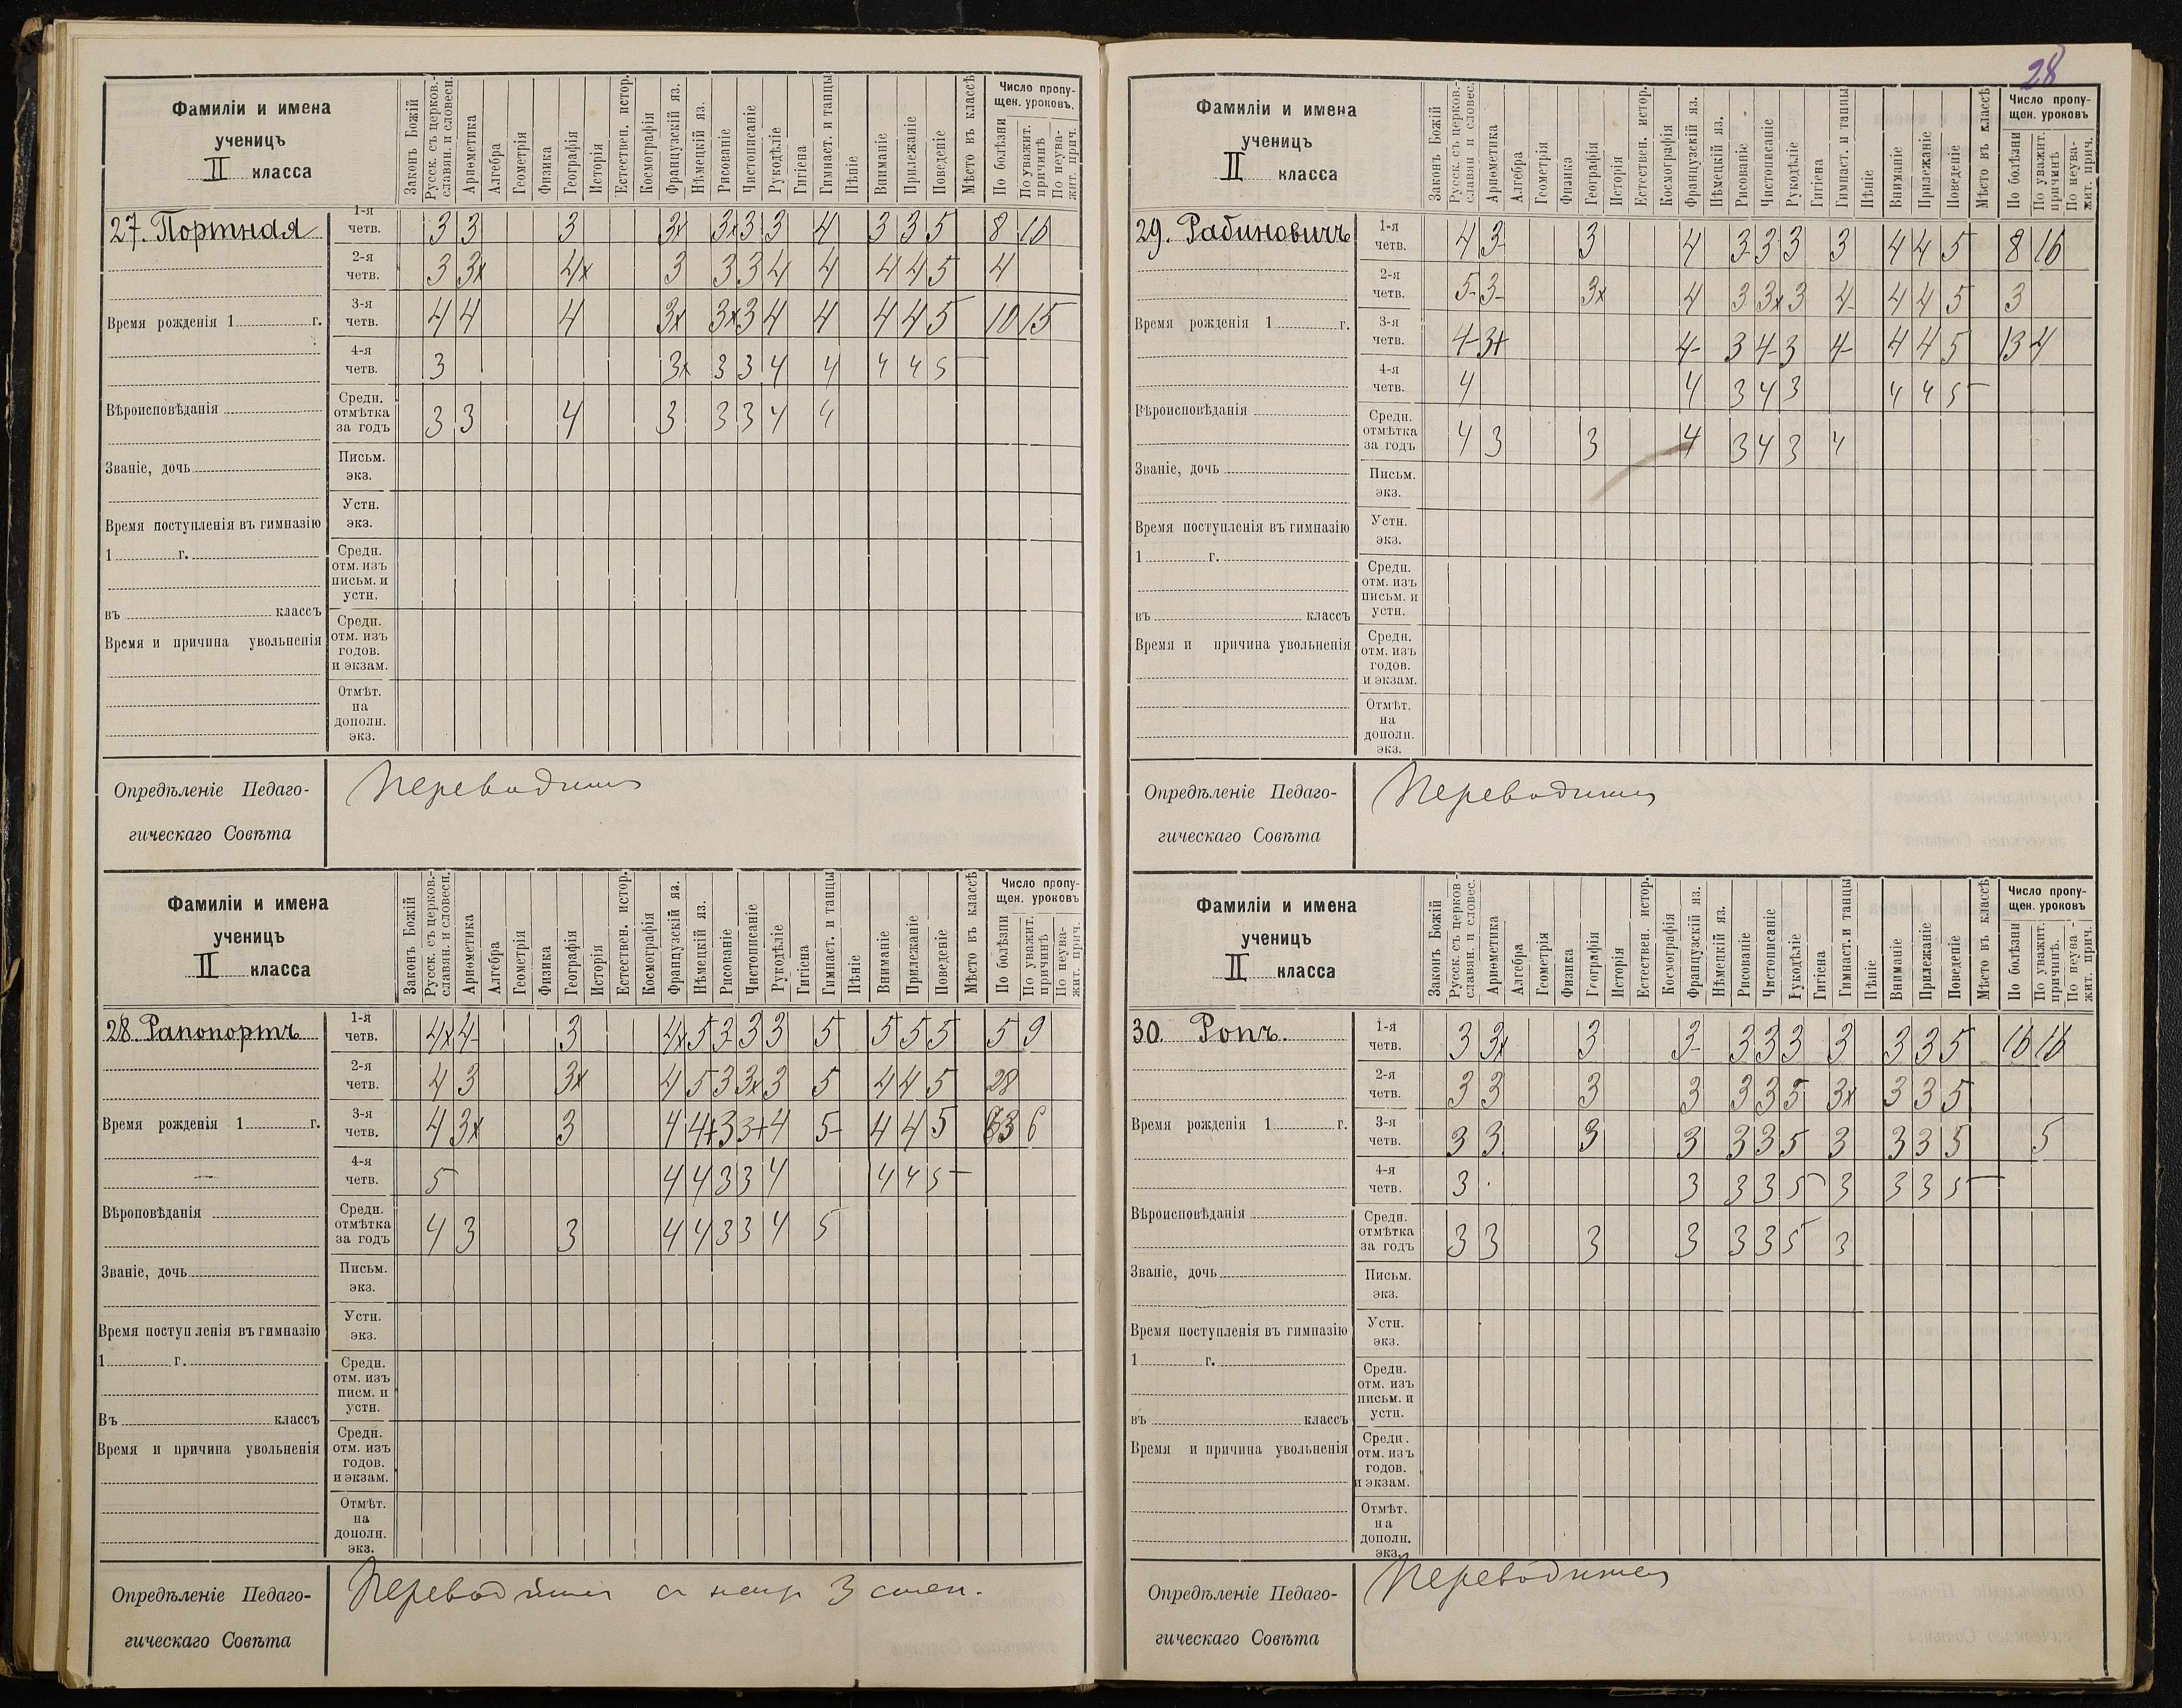 28
Фамиліи и имена
ученицъ
II класса
Законъ Божій
Русск. съ церков.-
славян. и словесн.
Ариѳметика
Алгебра
Геометрія
Физика
Географія
Исторія
Естествен. истор.
Космографія
Французскій яз.
Нѣмецкій яз.
Рисованіе
Чистописаніе
Рукодѣліе
Гигіена
Гимнаст. и танцы
Пѣніе
Вниманіе
Прилежаніе
Поведеніе
Мѣсто въ классѣ
Число пропу-
щен. уроковъ.
По болѣзни
По уважит.
причинѣ
По неува-
жит. прич.
27. Портная
1-я четв. 3 3 3 3x 3x 3 3 4 3 3 5 8 16
2-я четв. 3 3x 4x 3 3 3 4 4 4 4 5 4
3-я четв. 4 4 4 3x 3x 3 4 4 4 4 5 10 15
4-я четв. 3 3x 3 3 4 4 4 4 5
Средн. отмѣтка за годъ 3 3 4 3 3 3 4 4
Время рожденія 1 г.
Вѣроисповѣданія
Званіе, дочь
Время поступленія въ гимназію
1 г.
въ классъ
Время и причина увольненія
Письм. экз.
Устн. экз.
Средн. отм. изъ письм. и устн.
Средн. отм. изъ годов. и экзам.
Отмѣт. на дополн. экз.
Опредѣленіе Педаго-
гическаго Совѣта
Переводится
Фамиліи и имена
ученицъ
II класса
Законъ Божій
Русск. съ церков.-
славян. и словесн.
Ариѳметика
Алгебра
Геометрія
Физика
Географія
Исторія
Естествен. истор.
Космографія
Французскій яз.
Нѣмецкій яз.
Рисованіе
Чистописаніе
Рукодѣліе
Гигіена
Гимнаст. и танцы
Пѣніе
Вниманіе
Прилежаніе
Поведеніе
Мѣсто въ классѣ
Число пропу-
щен. уроковъ
По болѣзни
По уважит.
причинѣ
По неува-
жит. прич.
28. Рапопортъ
1-я четв. 4x 4- 3 4x 5 3 3 3 5 5 5 5 5 9
2-я четв. 4 3 3x 4 5 3 3x 3 5 4 4 5 28
3-я четв. 4 3x 3 4 4+ 3 3+ 4 5- 4 4 5 63 6
4-я четв. 5 4 4 3 3 4 4 4 5
Средн. отмѣтка за годъ 4 3 3 4 4 3 3 4 5
Время рожденія 1 г.
Вѣроповѣданія
Званіе, дочь
Время поступленія въ гимназію
1 г.
Въ классъ
Время и причина увольненія
Письм. экз.
Устн. экз.
Средн. отм. изъ писм. и устн.
Средн. отм. изъ годов. и экзам.
Отмѣт. на дополн. экз.
Опредѣленіе Педаго-
гическаго Совѣта
Переводится 3 степ.
Фамиліи и имена
ученицъ
II класса
Законъ Божій
Русск. съ церков.-
славян и словес.
Ариѳметика
Алгебра
Геометрія
Физика
Географія
Исторія
Естествен. истор.
Космографія
Французскій яз.
Нѣмецкій яз.
Рисованіе
Чистописаніе
Рукодѣліе
Гигіена
Гимнаст. и танцы
Пѣніе
Вниманіе
Прилежаніе
Поведеніе
Мѣсто въ классѣ
Число пропу-
щен. уроковъ
По болѣзни
По уважит.
причинѣ
По неува-
жит. прич.
29. Рабиновичъ
1-я четв. 4 3- 3 4 3- 3 3 3 4 4 5 8 16
2-я четв. 5- 3- 3x 4 3 3x 3 4- 4 4 5 3
3-я четв. 4- 3+ 4- 3 4- 3 4- 4 4 5 13 4
4-я четв. 4 4 3 4 3 4 4 5
Средн. отмѣтка за годъ 4 3 3 4 3 4 3 4
Время рожденія 1 г.
Вѣроисповѣданія
Званіе, дочь
Время поступленія въ гимназію
1 г.
въ классъ
Время и причина увольненія
Письм. экз.
Устн. экз.
Средн. отм. изъ письм. и устн.
Средн. отм. изъ годов. и экзам.
Отмѣт. на дополн. экз.
Опредѣленіе Педаго-
гическаго Совѣта
Переводится
Фамиліи и имена
ученицъ
II класса
Законъ Божій
Русск. съ церков-
славян. и словес.
Ариѳметика
Алгебра
Геометрія
Физика
Географія
Исторія
Естествен. истор.
Космографія
Французскій яз.
Нѣмецкій яз.
Рисованіе
Чистописаніе
Рукодѣліе
Гигіена
Гимнаст. и танцы
Пѣніе
Вниманіе
Прилежаніе
Поведеніе
Мѣсто въ классѣ
Число пропу-
щен. уроковъ
По болѣзни
По уважит.
причинѣ.
По неува-
жит. прич.
30. Ропъ.
1-я четв. 3 3x 3 3- 3 3 3 3 3 3 5 16 16
2-я четв. 3 3 3 3 3 3 5 3x 3 3 5
3-я четв. 3 3 3 3 3 3 5 3 3 3 5 5
4-я четв. 3 3 3 3 5 3 3 3 5
Средн. отмѣтка за годъ 3 3 3 3 3 3 5 3
Время рожденія 1 г.
Вѣроисповѣданія
Званіе, дочь
Время поступленія въ гимназію
1 г.
въ классъ
Время и причина увольненія
Письм. экз.
Устн. экз.
Средн. отм. изъ письм. и устн.
Средн. отм. изъ годов. и экзам.
Отмѣт. на дополн. экз.
Опредѣленіе Педаго-
гическаго Совѣта
Переводится